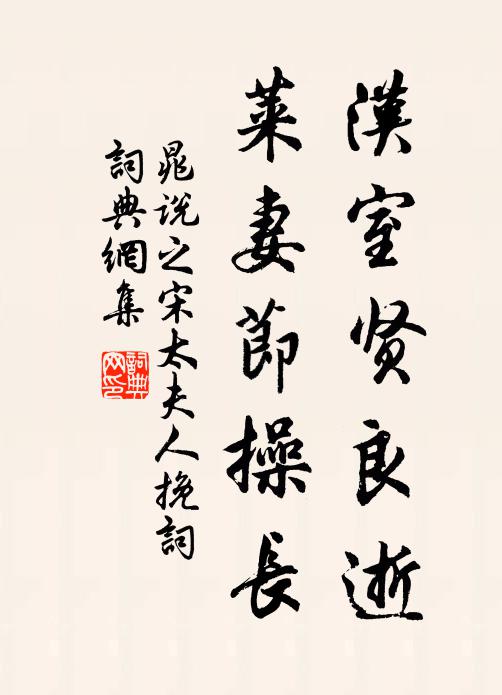 漢室贤良逝
萊妻節操長
晁说之宋太夫人挽詞
詞典網集
詞典网印